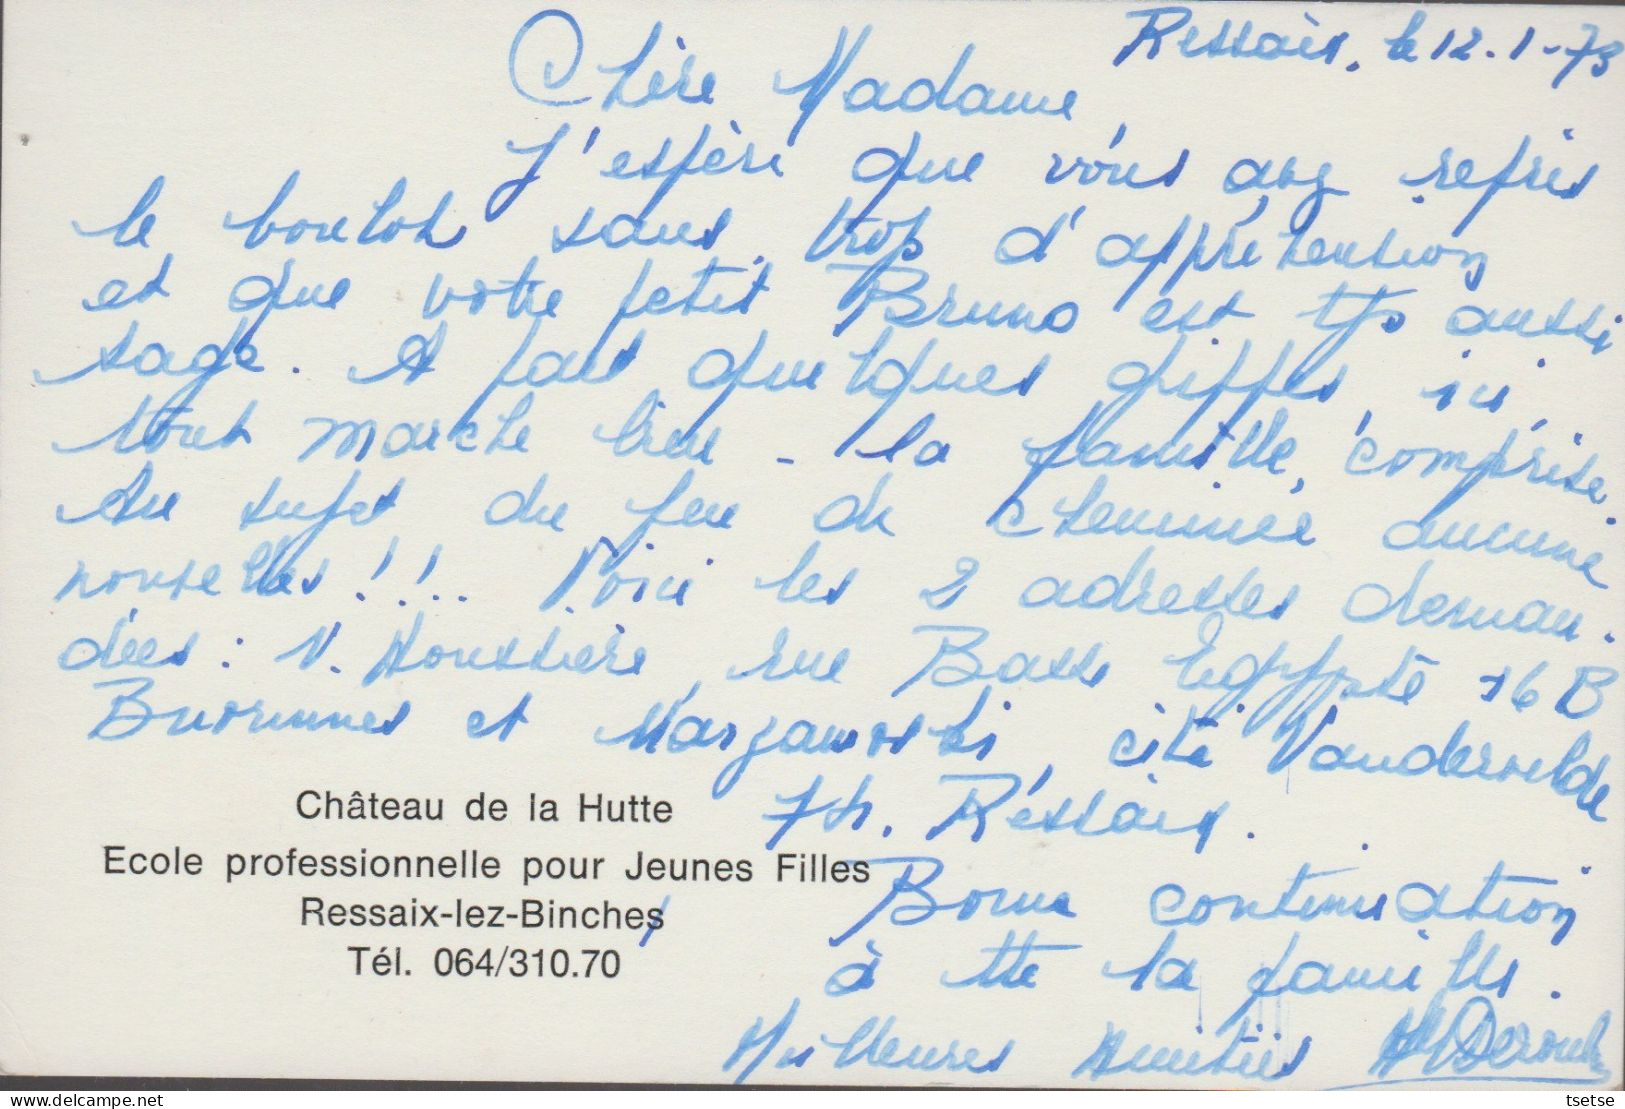 Ressaix, le 12.1-73
Chère Madame,
J'espère que vous avez repris
le boulot sans trop d'appréhension
et que votre petit Bruno est tjs aussi
sage. A part quelques grippes, ici,
tout marche bien - la famille comprise.
Au sujet du feu de cheminée aucune
nouvelles!!.. Voici les 2 adresses deman-
dées: V. Houssière, rue Basse Egypte 16 B
et cité Vandervelde
74. Ressaix.
Château de la Hutte
Ecole professionnelle pour Jeunes Filles
Ressaix-lez-Binches
Tél. 064/310.70
Bonne continuation
à tte la famille.
Meilleures Amitiés
tsetse